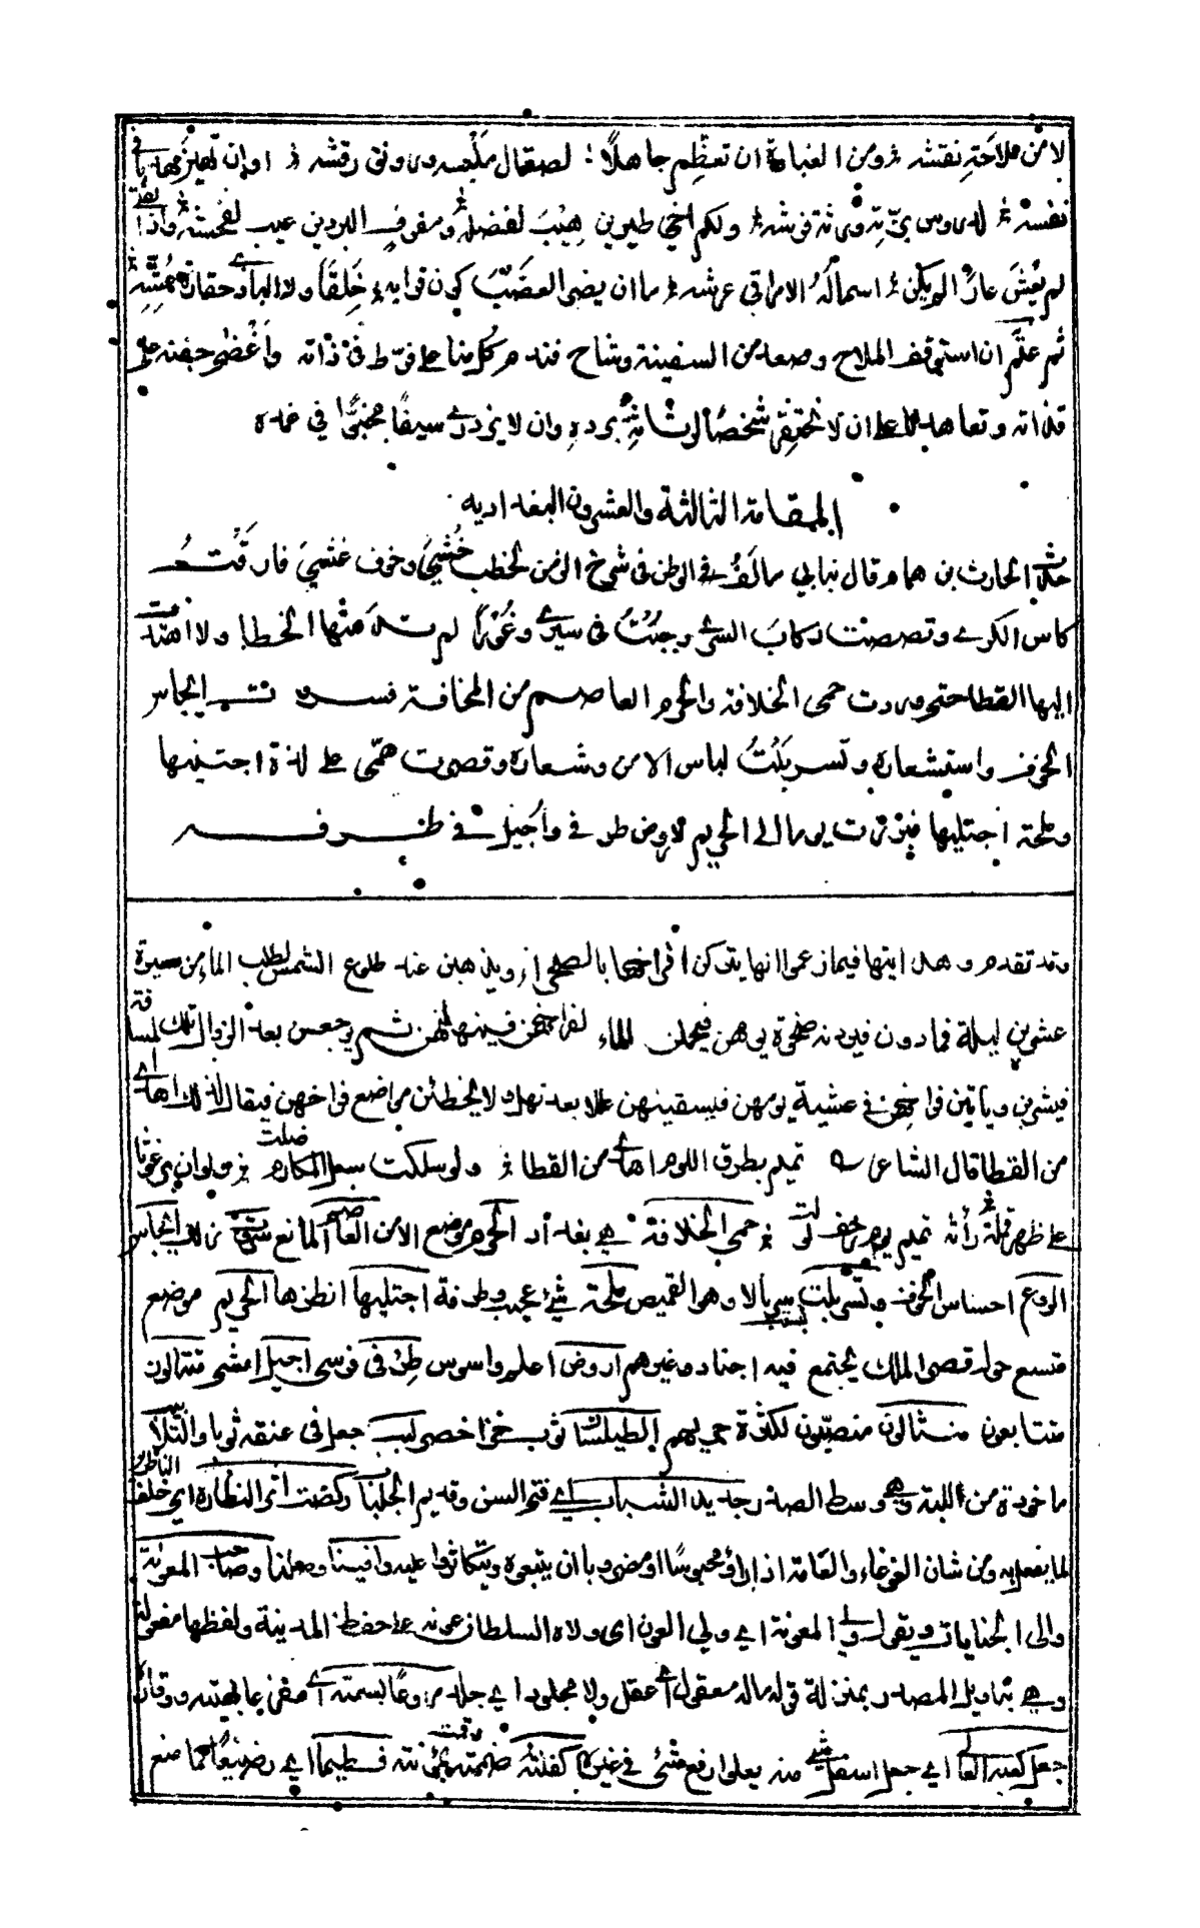 لا من ملاحة نقشه ومن الغباوة ان تعظم جاهلا لصقال ملبسه ورونق رقشه او ان تهين مهذبا في
نفسه لدروس بزته ورثة فرشه ولكم اخي طمرين هيب لفضله ومفوف البردين عيب لفحشه واذا الفتى
لم يغش عارا لم يكن اسماله الا مراقي عرشه ما ان يضر العضب كون قرابه خلقا ولا البازي حقارة عشه
ثم ما عتم ان استوقف الملاح وصعد من السفينة وساح فندم كل منا على ما فرط في ذاته واغضى جفنه على
قذاته وتعاهدنا على ان لا نحتقر شخصا لرثاثة برده وان لا نزدري سيفا مخبئا في غمده
المقامة الثالثة والعشرون البغدادية
حكى الحارث بن همام قال نبا بي مالف الوطن في شرخ الزمن لخطب خشي وخوف غشي فارقت
كاس الكرى ونصصت ركاب السرى وجبت في سيري وعورا لم تدمثها الخطا ولا اهتدت
اليها القطا حتى وردت حمى الخلافة والحرم العاصم من المخافة فسروت ايجاس
الخوف واستشعاره وتسربلت لباس الامن وشعاره وقصرت همي على لذة اجتنيها
وملحة اجتليها فبرزت يوما الى الحريم لاروض طرفي واجيل في طرفه
وقد تقدم وهدايتها فيما زعموا انها يتركن افراخها بالصحراء ويذهبن عند طلوع الشمس لطلب الماء من مسيرة
عشرين ليلة فما دون فيردنه ضحوة يومهن فيحملن الماء لفراخهن فينهلنهن ثم يرجعن بعد الزوال تلك المسافة
فيشربن وياتين فراخهن في عشية يومهن فيسقينهن عللا بعد نهل ولا يخطئن مواضع فراخهن فيقال لذلك اهدى
من القطا قال الشاعر تميم بطرق اللوم اهدى من القطا ولو سلكت سبل المكارم ضلت ولو ان برغوثا
على ظهر قملة راته تميم يوم زحف لولت حمى الخلافة هي بغداد الحرم موضع الامن العاصم المانع سروت نزلت ايجاس
الروع احساس الخوف وتسربلت لبست سربالا وهو القميص ملحة شيء عجيب وطرفة اجتليها انظرها الحريم موضع
متسع حول قصر الملك يجتمع فيه اجناده وغيرهم اروض اعلم واسوس طرفي فرسي اجيل امشي متتالون
متتابعون منثالون منصبون لكثرة جريهم الطيلسان ثوب خز اخضر لبب جعل في عنقه ثوبا والتلبيب
ماخوذة من اللبة وهي وسط الصدر جديد الشباب اي فتى السن وقديم الجلباب ركضت اثر النظارة اي خلف الناظرين
لما يفعل به ومن شان الغوغاء والعامة اذا راوا محبوسا او مضروبا ان يتبعوه ويتكاثروا عليه وافينا وصلنا وصاحب المعونة
والى الجنايات ويقول ولي المعونة اي ولي العون اي ولاه السلطان عونه على حفظ المدينة ولفظها مفعولة
وهي بتاويل المصدر بمنزلة قوله ماله معقول اي عقل ولا مجلود اي جلد مروعا بسمته اي مفزعا بهيئته ووقاره
جعل كعبه العالي اي جعل اسفل شيء منه يعلو ارفع شيء في غيره كفلته ضممته وقمت بمؤنته فطيما اي رضيعا كما صنع